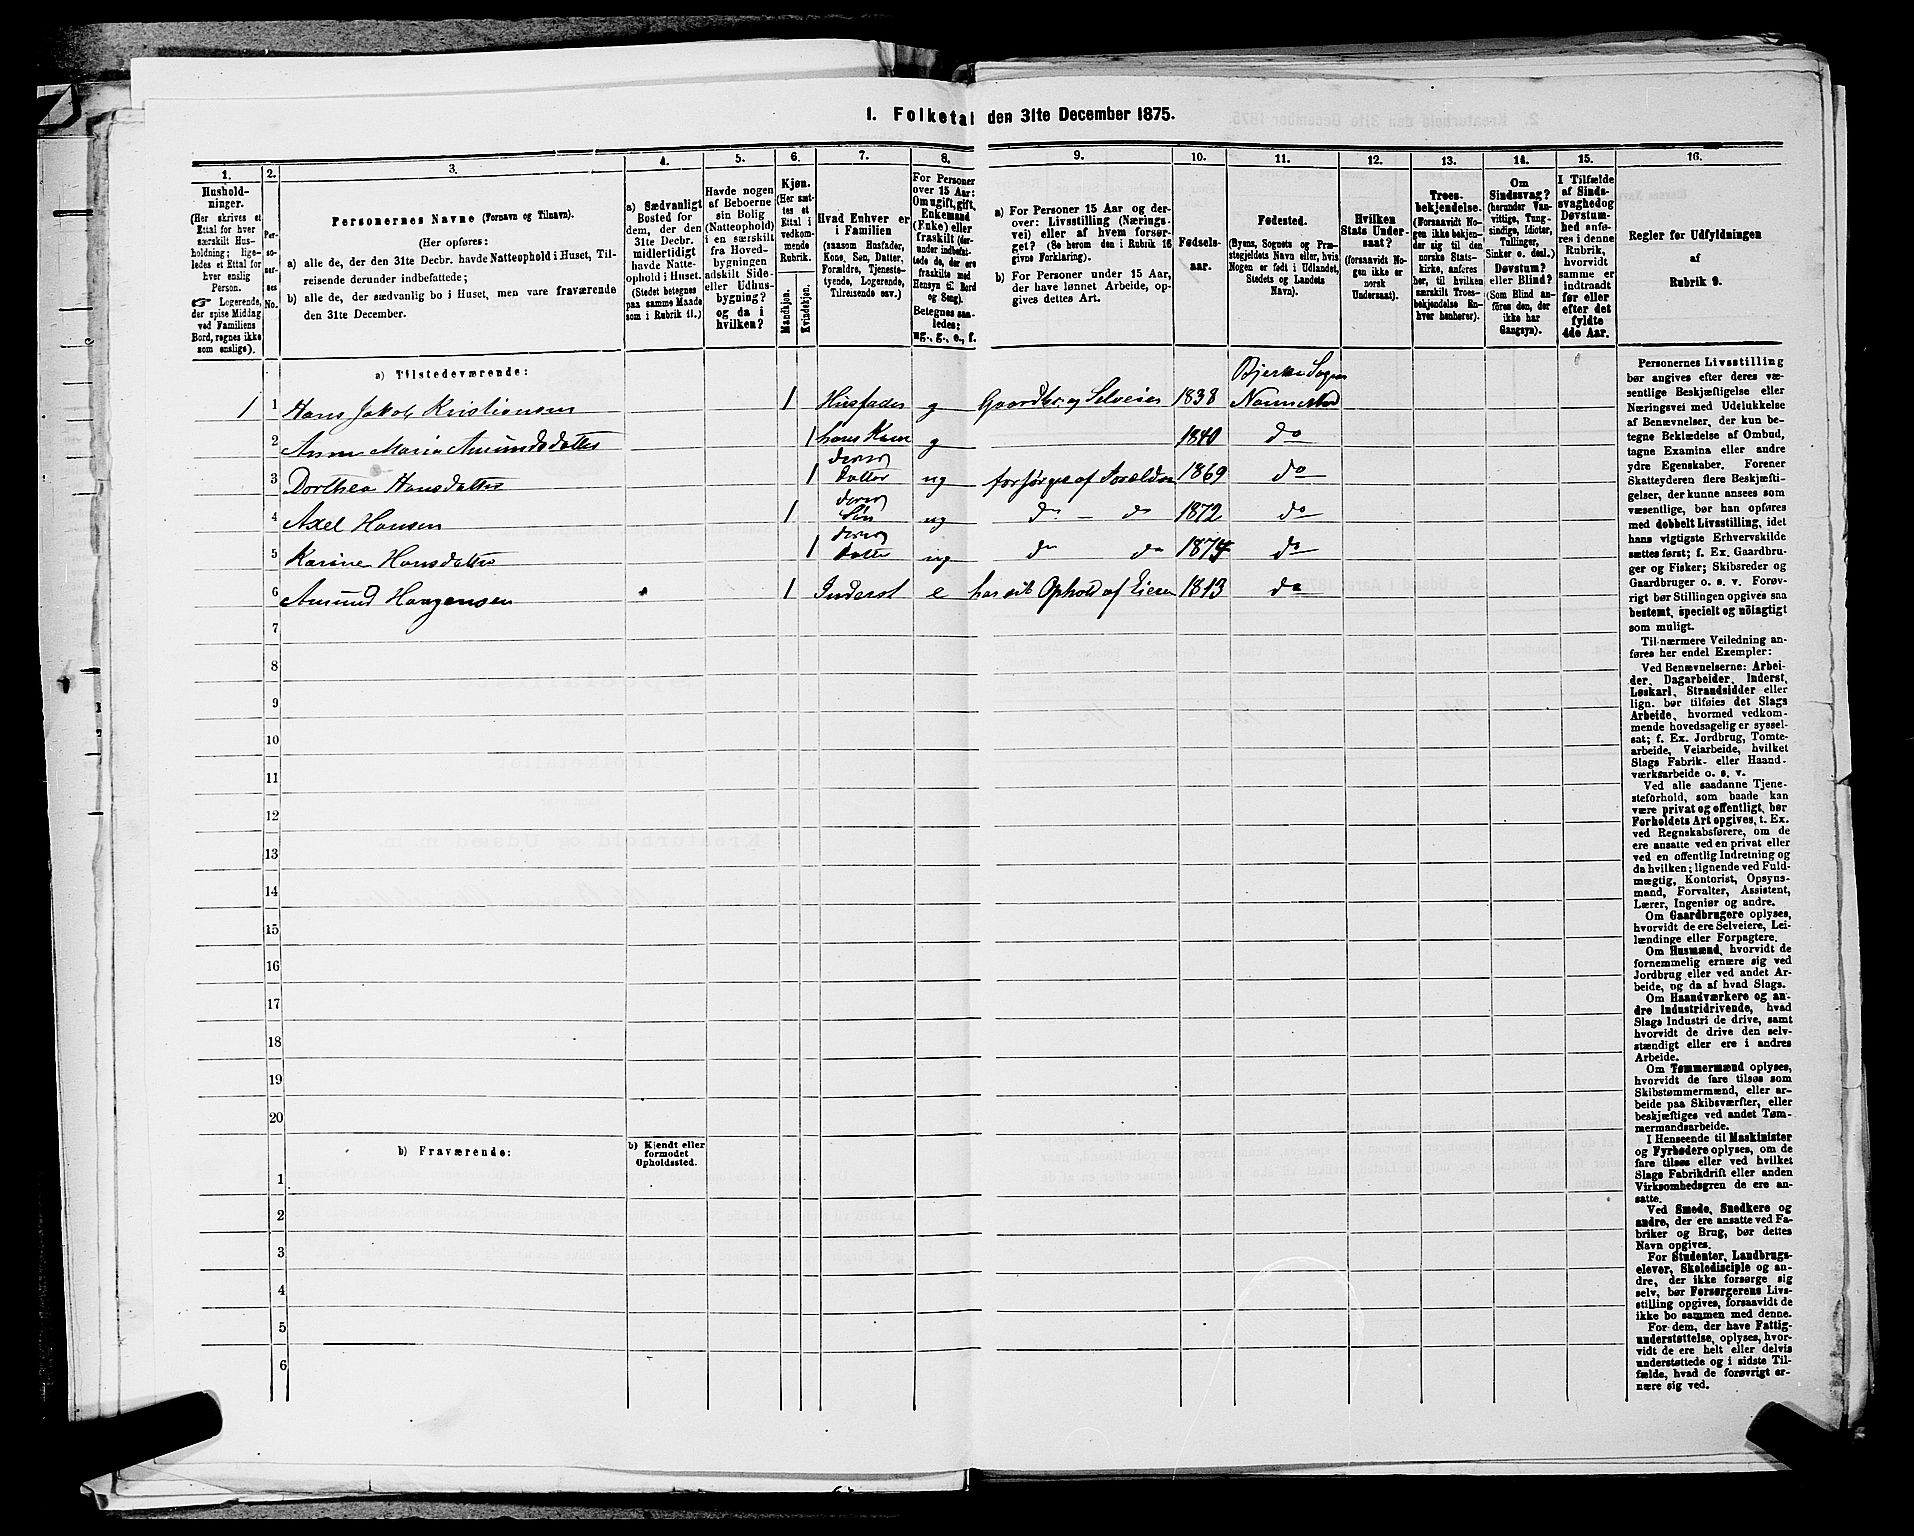 1. Folketal den 31te December 1875.
1. 2. 3. 4. 5. 6. 7. 8. 9. 10. 11. 12. 13. 14. 15. 16.
Hushold-
ninger.
(Her skrives et
Ettal for hver
særskilt Hus-
holdning; lige-
ledes et Ettal for
hver enslig
Person.
☞ Logerende,
der spise Middag
ved Familiens
Bord, regnes ikke
som enslige).
Per-
so-
ner-
nes
No.
Personernes Navne (Fornavn og Tilnavn).
(Her opføres:
a) alle de, der den 31te Decbr. havde Natteophold i Huset, Til-
reisende derunder indbefattede;
b) alle de, der sædvanlig bo i Huset, men vare fraværende
den 31te December.
a) Sædvanligt
Bosted for
dem, der den
31te Decbr.
midlertidigt
havde Natte-
ophold i Huset.
(Stedet betegnes
paa samme Maade
som i Rubrik 11.)
Havde nogen
af Beboerne
sin Bolig
(Natteophold)
i en særskilt
fra Hoved-
bygningen
adskilt Side-
eller Udhus-
bygning?
og da i
hvilken?
Kjøn.
(Her sæt-
tes et
Ettal i
vedkom-
mende
Rubrik.
Mandkjøn.
Kvindekjøn.
Hvad Enhver er
i Familien
(saasom Husfader,
Kone, Søn, Datter,
Forældre, Tjeneste-
tyende, Logerende,
Tilreisende osv.)
For Personer
over 15 Aar:
Om ugift, gift,
Enkemand
(Enke) eller
fraskilt (der-
under indbefat-
tede de, der ere
fraskilte med
Hensyn til Bord
og Seng).
Betegnes saa-
ledes:
ug., g., e., f.
a) For Personer 15 Aar og der-
over: Livsstilling (Nærings-
vei) eller af hvem forsør-
get? (Se herom den i Rubrik 16
givne Forklaring).
b) For Personer under 15 Aar,
der have lønnet Arbeide, op-
gives dettes Art.
Fødsels-
aar.
Fødested.
(Byens, Sognets og Præ-
stegjeldets Navn eller, hvis
Nogen er født i Udlandet,
Stedets og Landets
Navn).
Hvilken
Stats Under-
saat?
(forsaavidt No-
gen ikke er
norsk
Undersaat).
Troes-
bekjendelse.
(Forsaavidt No-
gen ikke bekjen-
der sig til den
norske Stats-
kirke, anføres
her, til hvilken
særskilt Troes-
bekjendelse En-
hver henhører).
Om
Sindssvag?
(herunder Van-
vittige, Tung-
sindige, Idioter,
Tullinger,
Sinker o. desl.)
Døvstum?
eller Blind?
(Som Blind an-
føres den, der
ikke har
Gangsyn).
I Tilfælde
af Sinds-
svaghed og
Døvstum-
hed anfø-
res i denne
Rubrik,
hvorvidt
samme er
indtraadt
før eller
efter det
fyldte
4de Aar.
Regler før Udfyldningen
af
Rubrik 9.
a) Tilstedeværende:
1 1 Hans Jakob Kristiansen 1 Husfader g Gaardbr. og Selveier 1838 Bjerke Sogn Nannestad
2 Anne Maria Amundsdatter 1 hans Kone g 1840 do
3 Dorthea Hansdatter 1 deres Datter ug forsørges af Forældre 1869 do
4 Axel Hansen 1 deres Søn ug do - do 1872 do
5 Karine Hansdatter 1 deres Datter ug do do 1874 do
6 Amund Haagensen 1 Inderst e har sit Ophold af Eieren 1813 do
7
8
9
10
11
12
13
14
15
16
17
18
19
20
b) Fraværende:
b) Kjendt eller
formodet
Opholdssted.
1
2
3
4
5
6
Personernes Livsstilling
bør angives efter deres væ-
sentlige Beskjæftigelse eller
Næringsvei med Udelukkelse
af Benævnelser, der kun be-
tegne Beklædelse af Ombud,
tagne Examina eller andre
ydre Egenskaber. Forener
Skatteyderen flere Beskjæfti-
gelser, der kunne ansees som
væsentlige, bør han opføres
med dobbelt Livsstilling, idet
hans vigtigste Erhvervskilde
sættes først; f. Ex. Gaardbru-
ger og Fisker; Skibsreder og
Gaardbruger o. s. v. Forøv-
rigt bør Stillingen opgives saa
bestemt, specielt og nöiagtigt
som muligt.
Til nærmere Veiledning an-
føres her endel Exempler:
Ved Benævnelserne: Arbei-
der, Dagarbeider, Inderst,
Løskarl, Strandsidder eller
lign. bør tilføies det Slags
Arbeide, hvormed vedkom-
mende hovedsagelig er syssel-
sat; f. Ex. Jordbrug, Tomte-
arbeide, Veiarbeide, hvilket
Slags Fabrik- eller Haand-
værksarbeide o. s. v.
Ved alle saadanne Tjene-
steforhold, som baade kan
være privat og offentligt, bør
Forholdets Art opgives, t. Ex.
ved Regnskabsførere, om de
ere ansatte ved en privat eller
ved en offentlig Indretning og
da hvilken; lignende ved Fuld-
mægtig, Kontorist, Opsyns-
mand, Forvalter, Assistent,
Lærer, Ingeniør og andre.
Om Gaardbrugere oplyses,
hvorvidt de ere Selveiere, Lei-
lændinge eller Forpagtere.
Om Husmænd, hvorvidt de
fornemmelig ernære sig ved
Jordbrug eller ved andet Ar-
beide, og da af hvad Slags.
Om Haandværkere og an-
dre Industridrivende, hvad
Slags Industri de drive, samt
hvorvidt de drive den selv-
stændigt eller ere i andres
Arbeide.
Om Tømmermænd oplyses,
hvorvidt de fare tilsøs som
Skibstømmermænd, eller ar-
beide paa Skibsværfter, eller
beskjæftiges ved andet Tøm-
mermandsarbeide.
I Henseende til Maskinister
og Fyrbødere oplyses, om de
fare tilsøs eller ved hvilket
Slags Fabrikdrift eller anden
Virksomhedsgren de ere an-
satte.
Ved Smede, Snedkere og
andre, der ere ansatte ved Fa-
briker og Brug, bør dettes
Navn opgives.
For Studenter, Landbrugs-
elever, Skoledisciple og an-
dre, der ikke forsørge sig
selv, bør Forsørgerens Livs-
stilling opgives, forsaavidt de
ikke bo sammen med denne.
For dem, der have Fattig-
understøttelse, oplyses, hvor-
vidt de ere helt eller delvis
understøttede og i sidste Til-
fælde, hvad de forøvrigt er-
nære sig ved.